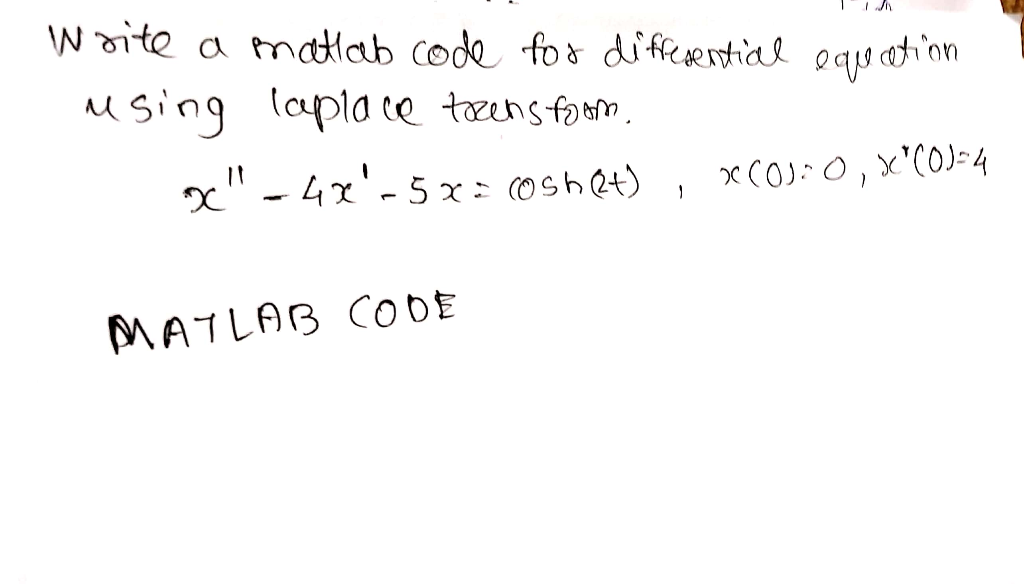 Write a matlab code for differential equation
using laplace transform.
x" - 4x' - 5x = cosh(2t) , x(0)=0, x'(0)=4
MATLAB CODE